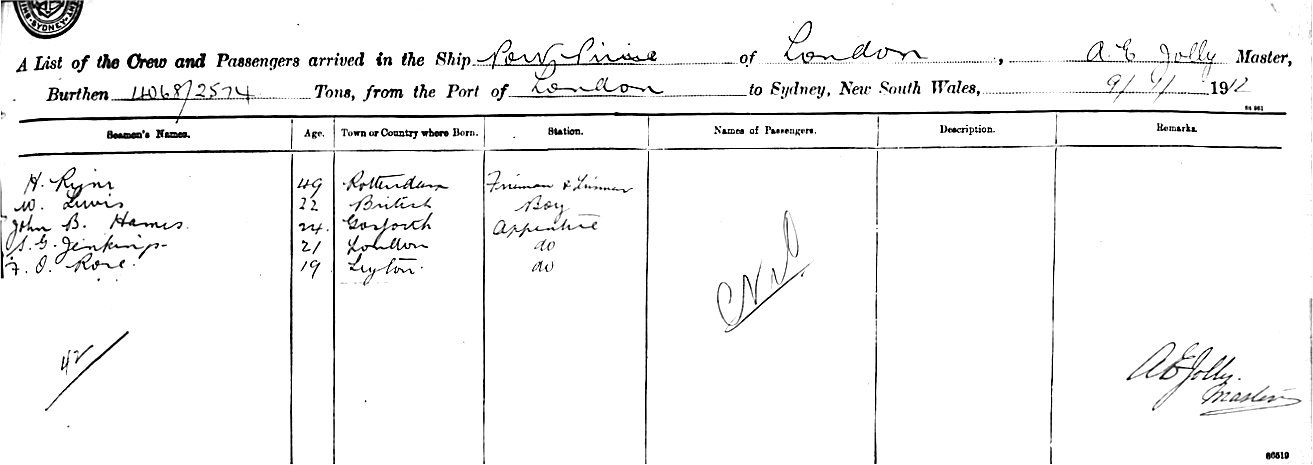 SYDNEY
A List of the Crew and Passengers arrived in the Ship of London, A. E Jolly Master,
Burthen 4068/2574 Tons, from the Port of London to Sydney, New South Wales, 9/1/1912
Seamen's Names. Age. Town or Country where Born. Station. Names of Passengers. Description. Remarks.
H. 49 Rotterdam Fireman &
W. Lewis 22 British Boy
John B. 24 Gosforth Apprentice
S. G. Jenkins 21 London do
F. O. Rose 19 Leyton do
Nil
42
A E Jolly.
Master
86519